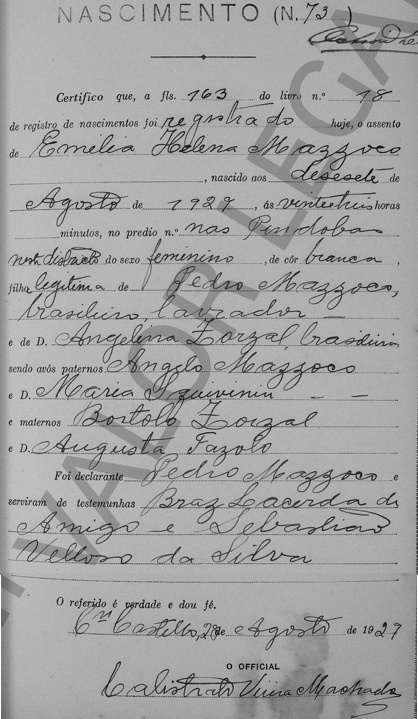 NASCIMENTO (N. 73)
Certifico que, a fls. 163 do livro n.º 18
de registro de nascimentos foi registrado hoje, o assento
de Emilia Helena Mazzoco
, nascido aos desesete de
Agosto de 1927, ás vinte e tres horas
minutos, no predio n.º nas Pindobas
neste districto do sexo feminino, de côr branca,
filha legitima de Pedro Mazzoco,
brasileiro, lavrador
e de D. Angelina Zorzal, brasileira
sendo avós paternos Angelo Mazzoco
e D. Maria
e maternos Bortolo Zorzal
e D. Augusta Fazolo
Foi declarante Pedro Mazzoco e
serviram de testemunhas Braz Lacerda de
Amigo e Sebastião
Velloso da Silva
O referido é verdade e dou fé.
Castello, 28 de Agosto de 1927
O OFFICIAL
Calistrato Vieira Machado
VALOR LEGAL